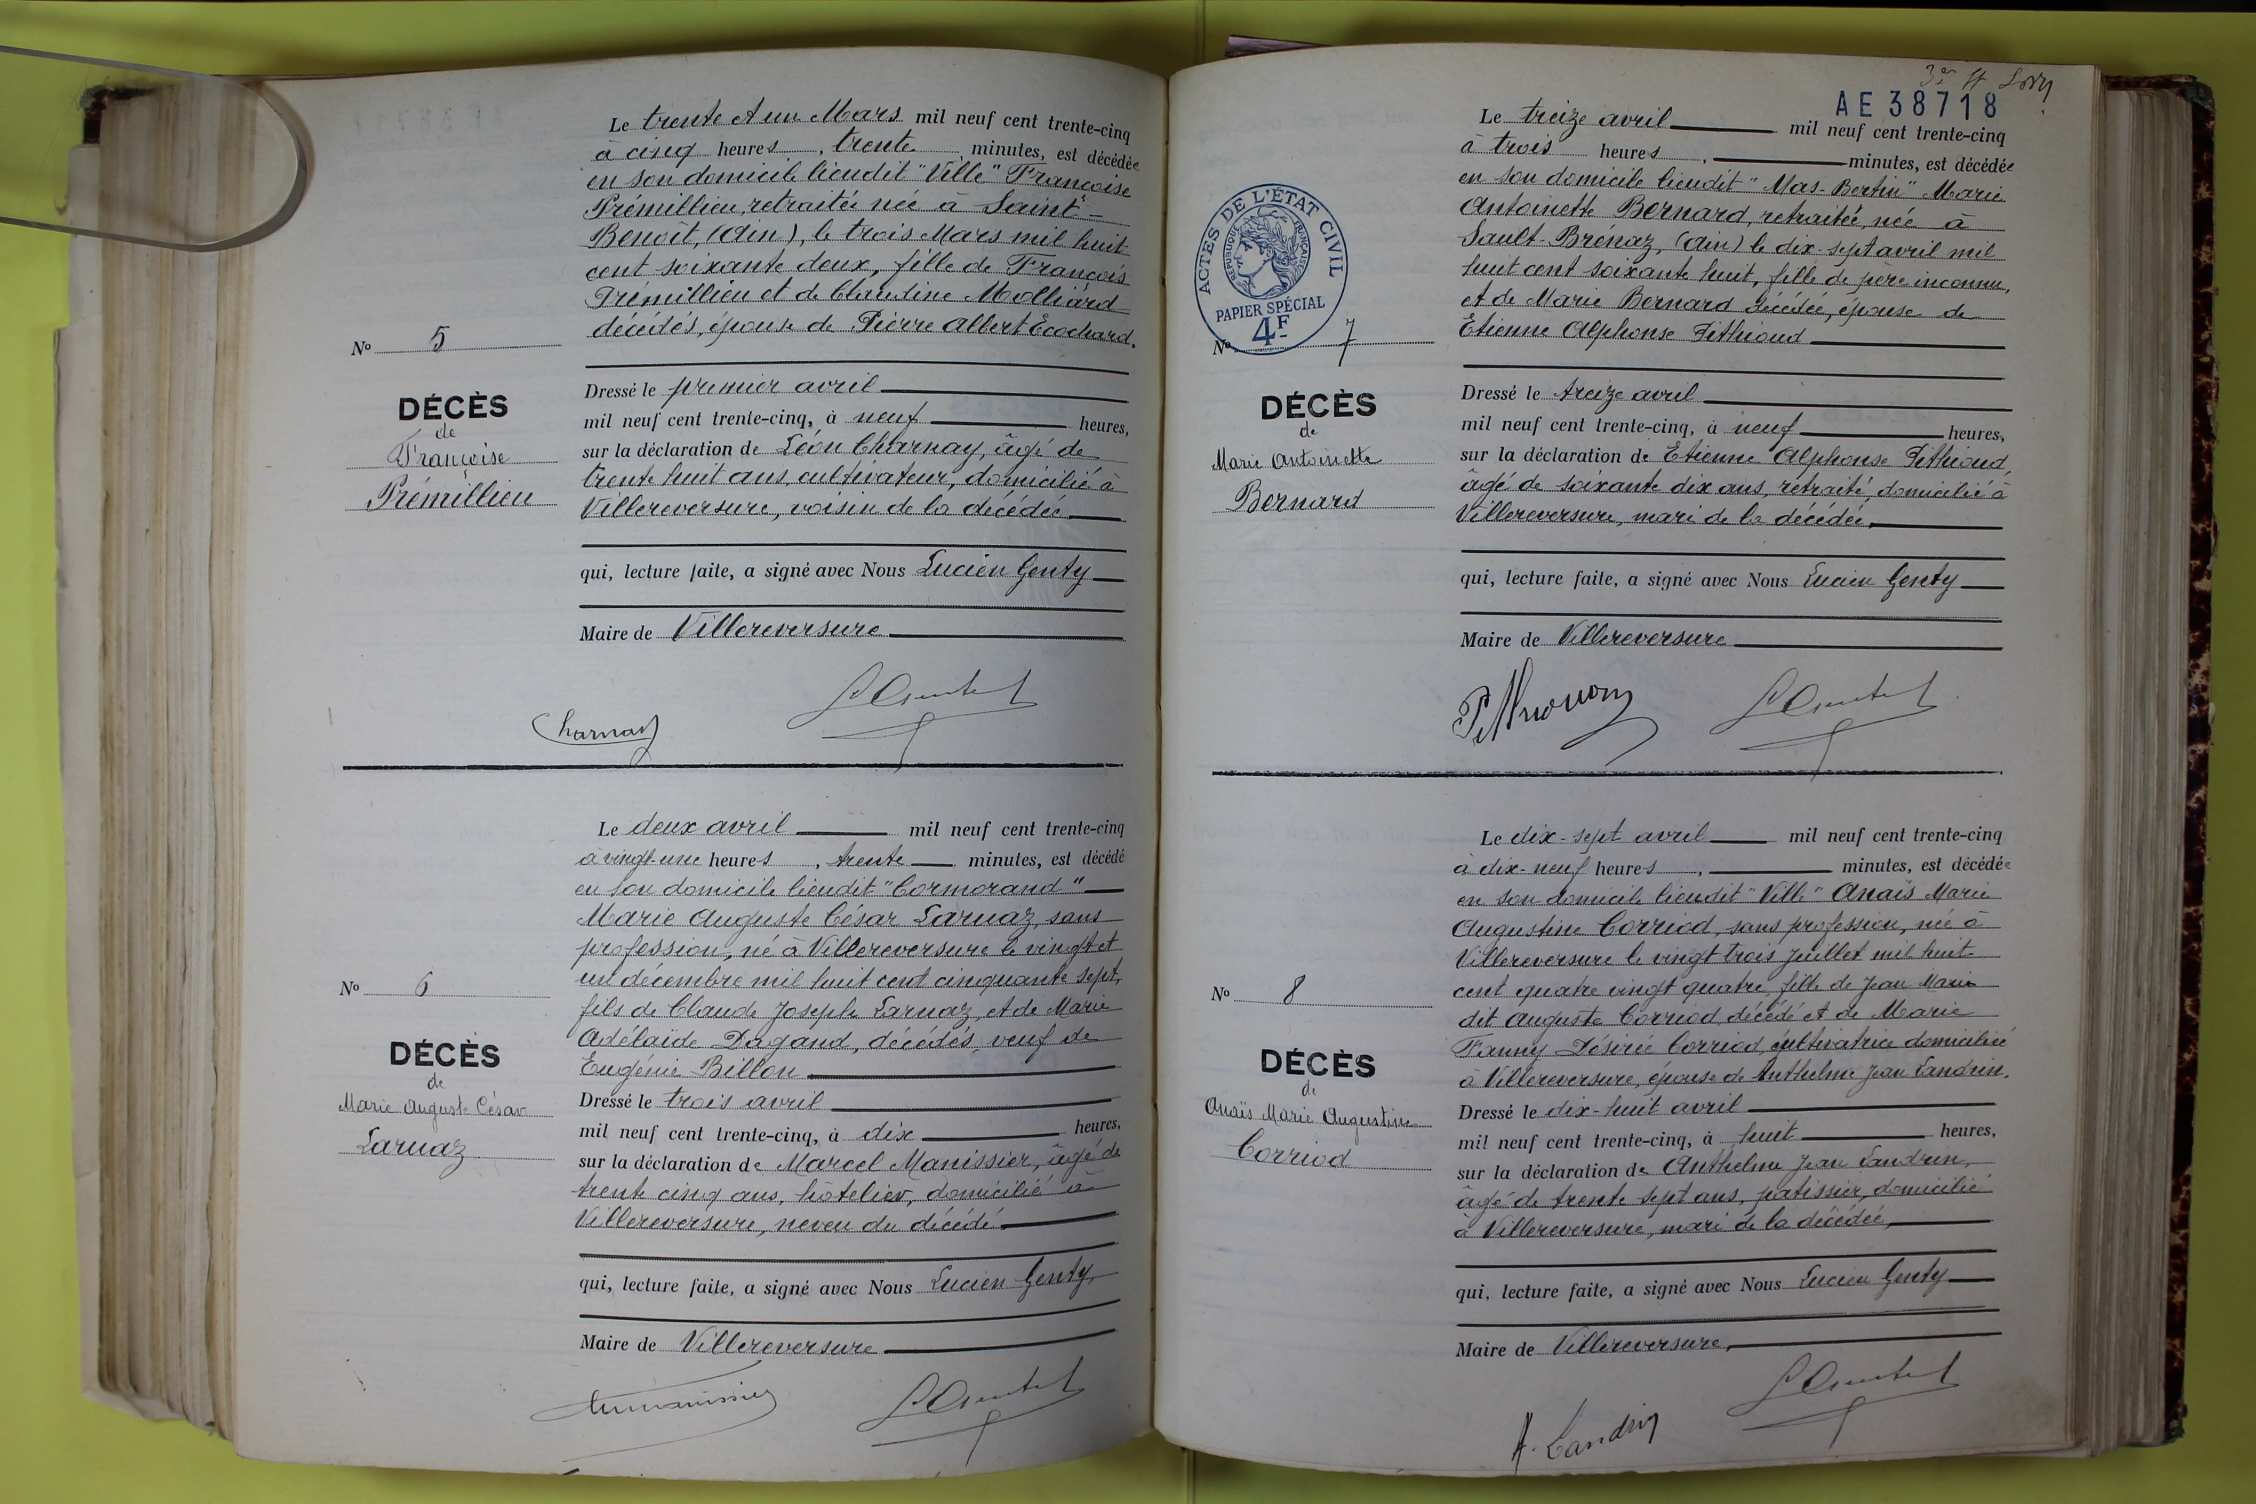 Le trente et un Mars mil neuf cent trente-cinq
à cinq heures, trente minutes, est décédée
en son domicile lieudit "Ville" Françoise
Prémillieu, retraitée née à Saint-
Benoit, (Ain), le trois Mars mil huit
cent soixante deux, fille de François
Prémillieu et de Claudine Molliard
décédés, épouse de Pierre Albert Ecochard.
Nº 5
DÉCÈS
de
Françoise
Prémillieu
Dressé le premier avril
mil neuf cent trente-cinq, à neuf heures,
sur la déclaration de Léon Charnay, âgé de
trente huit ans, cultivateur, domicilié à
Villereversure, voisin de la décédée
qui, lecture faite, a signé avec Nous Lucien Genty
Maire de Villereversure
Charnay
Le deux avril mil neuf cent trente-cinq
à vingt-une heures, trente minutes, est décédé
en son domicile lieudit "Cormorand"
Marie Auguste César Laruaz, sans
profession, né à Villereversure le vingt et
un décembre mil huit cent cinquante sept,
fils de Claude Joseph Laruaz, et de Marie
Adélaïde Dagand, décédés, veuf de
Eugénie Billon
Nº 6
DÉCÈS
de
Marie Auguste César
Laruaz
Dressé le trois avril
mil neuf cent trente-cinq, à dix heures,
sur la déclaration de Marcel Manissier, âgé de
trente cinq ans, hôtelier, domicilié à
Villereversure, neveu du décédé
qui, lecture faite, a signé avec Nous Lucien Genty,
Maire de Villereversure
AE 38718
Le treize avril mil neuf cent trente-cinq
à trois heures, minutes, est décédée
en son domicile lieudit "Mas-Bertin" Marie
Antoinette Bernard, retraitée, née à
Sault-Brénaz, (Ain) le dix-sept avril mil
huit cent soixante huit, fille de père inconnu,
et de Marie Bernard décédée, épouse de
Etienne Alphonse Péthioud
ACTES DE L'ÉTAT CIVIL
RÉPUBLIQUE FRANÇAISE
PAPIER SPÉCIAL
4F
Nº 7
DÉCÈS
de
Marie Antoinette
Bernard
Dressé le treize avril
mil neuf cent trente-cinq, à neuf heures,
sur la déclaration de Etienne Alphonse Péthioud,
âgé de soixante dix ans, retraité, domicilié à
Villereversure, mari de la décédée,
qui, lecture faite, a signé avec Nous Lucien Genty
Maire de Villereversure
Le dix-sept avril mil neuf cent trente-cinq
à dix-neuf heures, minutes, est décédée
en son domicile lieudit "Ville" Anaïs Marie
Augustine Corriod, sans profession, née à
Villereversure le vingt trois Juillet mil huit
cent quatre vingt quatre, fille de Jean Marie
dit Auguste Corriod, décédé et de Marie
Fanny Désirée Corriod, cultivatrice domiciliée
à Villereversure, épouse de Anthelme Jean Landrin.
Nº 8
DÉCÈS
de
Anaïs Marie Augustine
Corriod
Dressé le dix-huit avril
mil neuf cent trente-cinq, à huit heures,
sur la déclaration de Anthelme Jean Landrin,
âgé de trente sept ans, patissier, domicilié
à Villereversure, mari de la décédée,
qui, lecture faite, a signé avec Nous Lucien Genty
Maire de Villereversure,
A. Landrin